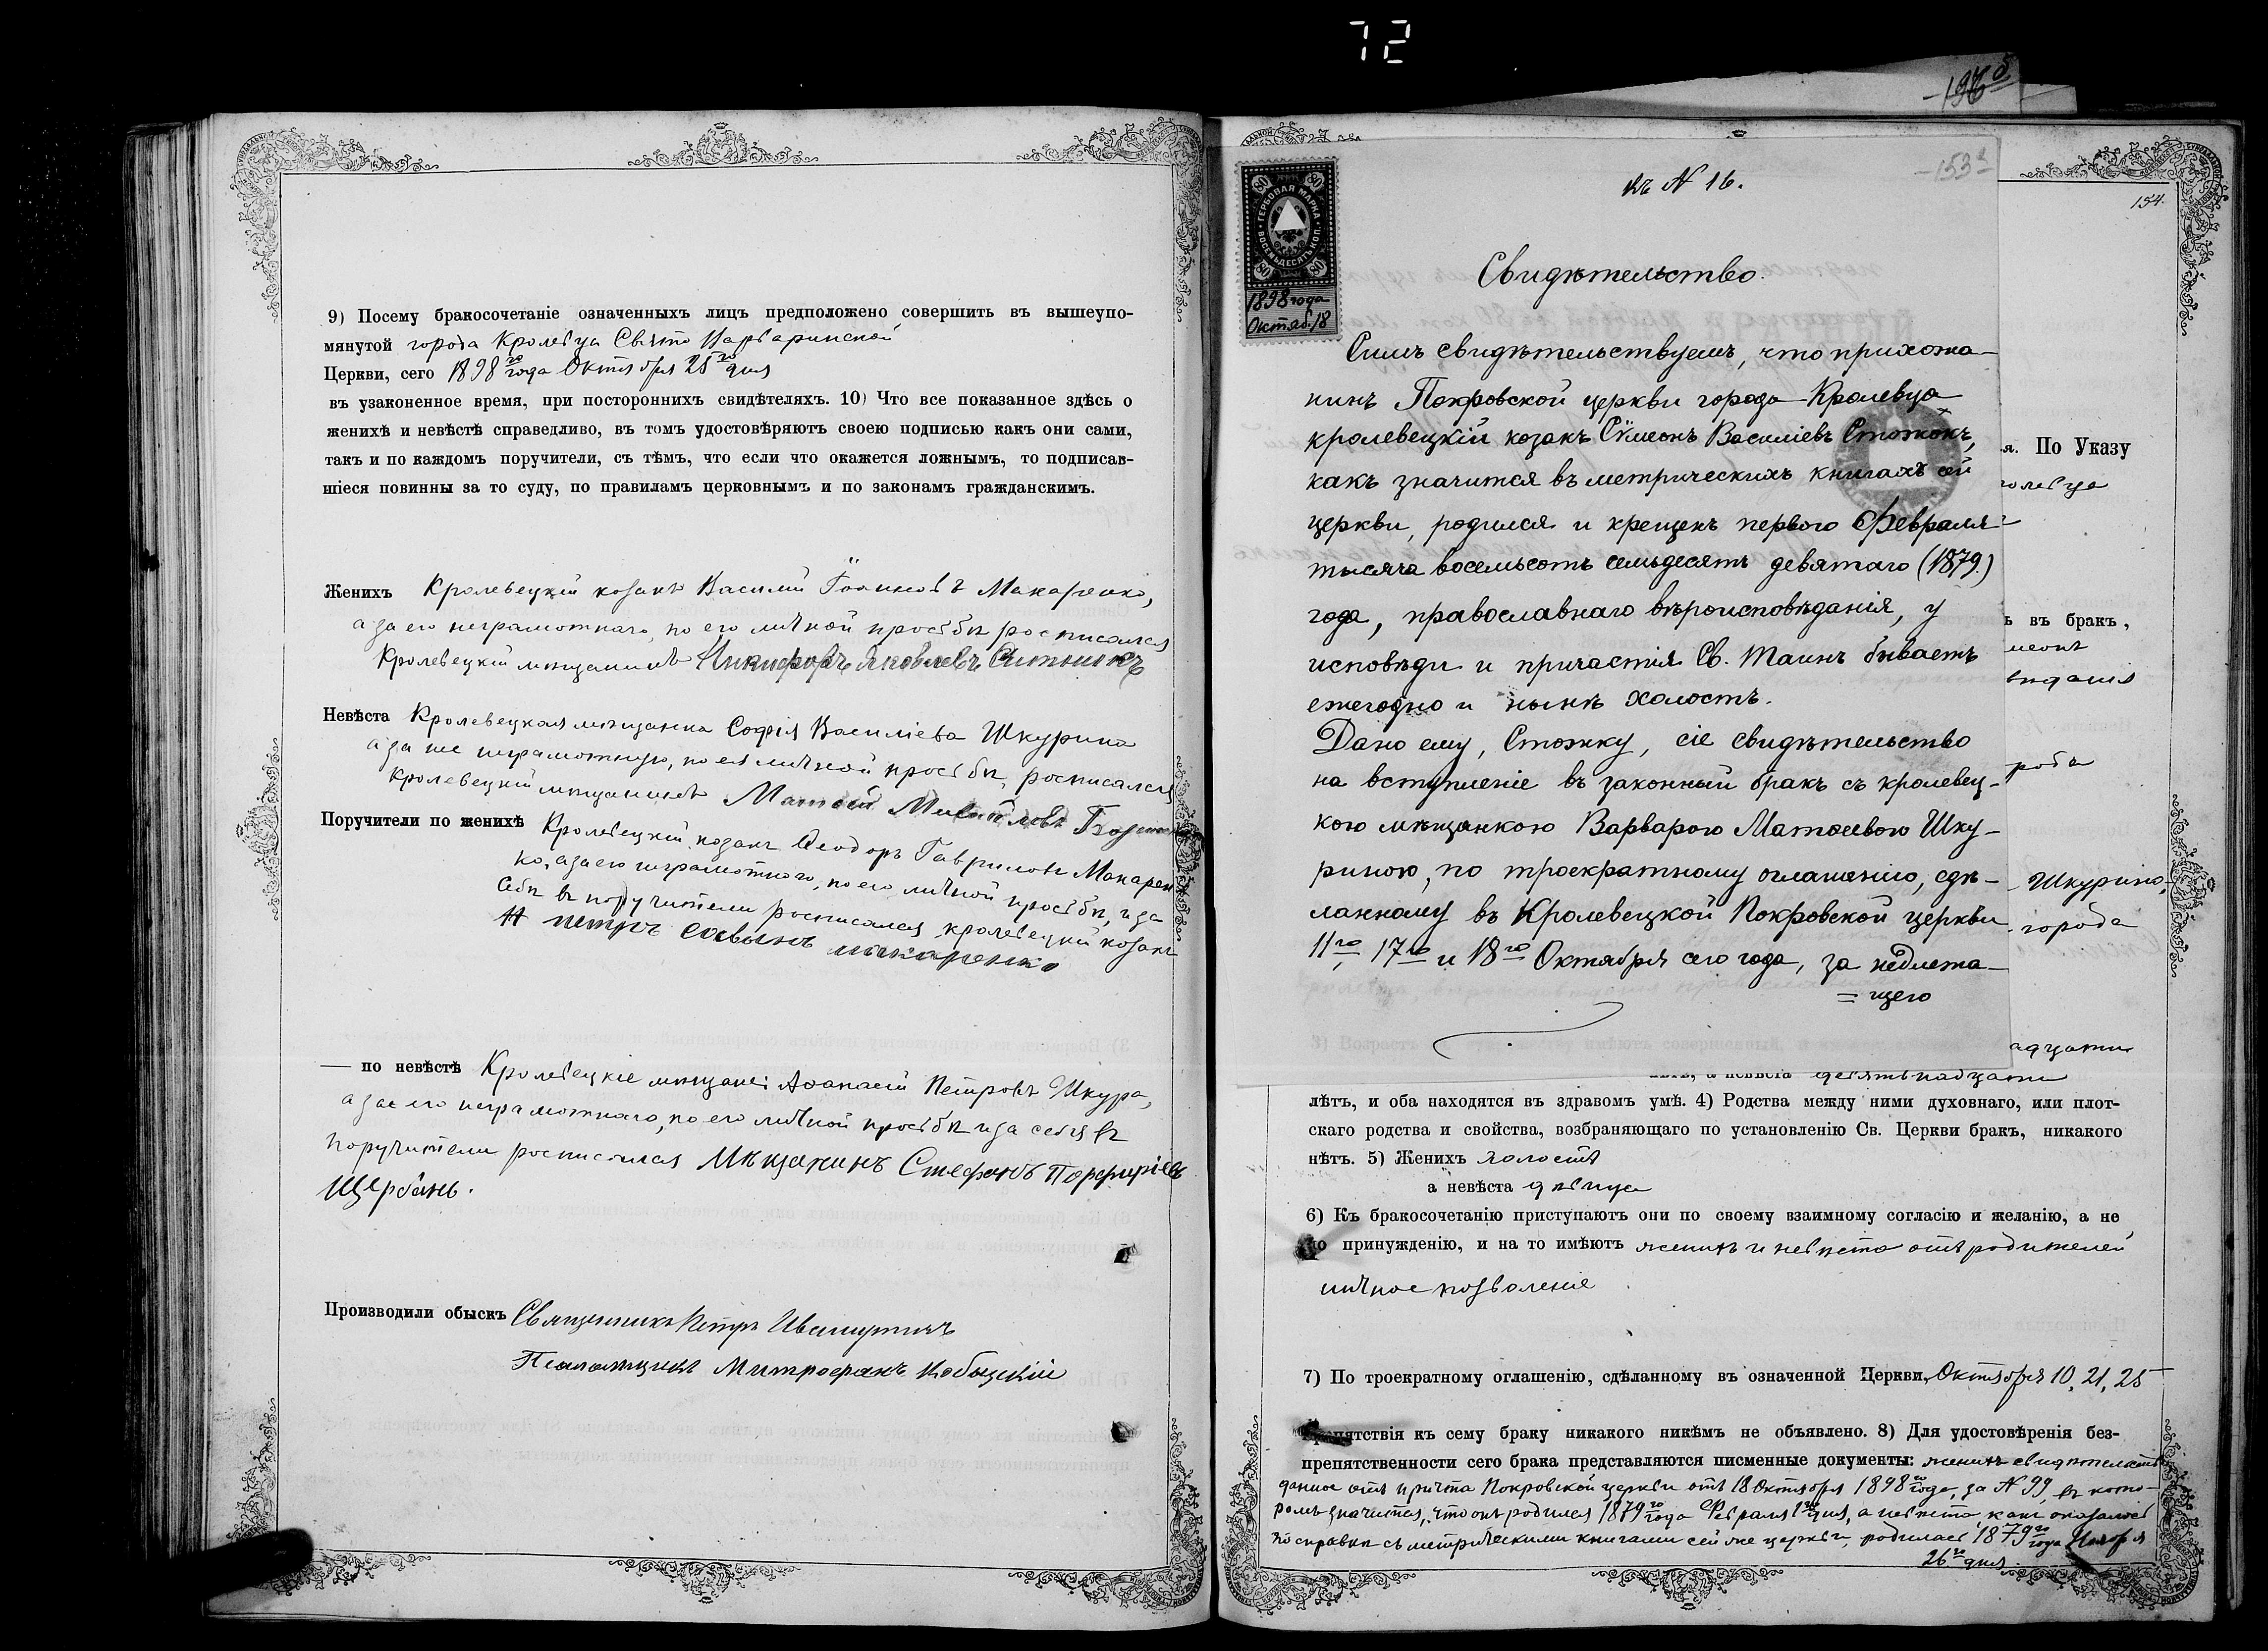 72
9) Посему бракосочетаніе означенныхъ лицъ предположено совершить въ вышеупо-
мянутой города Кролевца Свято Варваринской
Церкви, сего 1898го года Октября 25го дня
въ узаконенное время, при постороннихъ свидѣтеляхъ. 10) Что все показанное здѣсь о
женихѣ и невѣстѣ справедливо, въ томъ удостовѣряютъ своею подписью какъ они сами,
такъ и по каждомъ поручители, съ тѣмъ, что если что окажется ложнымъ, то подписав-
шіеся повинны за то суду, по правиламъ церковнымъ и по законамъ гражданскимъ.
Женихъ Кролевецкій козакъ Василій Іоанновъ Макаренко,
а за его неграмотнаго, по его личной просьбѣ росписался
Кролевецкій мѣщанинъ Никифоръ Яковлевъ
Невѣста Кролевецкая мѣщанка Софія Василіева Шкурина
а за нее неграмотную, по ея личной просьбѣ, росписался
Кролевецкій мѣщанинъ
Поручители по женихѣ Кролевецкій козакъ Ѳеодоръ Гавриловъ Макарен
ко, а за его неграмотного, по его личной просьбѣ, и за
себя въ поручители росписался кролевецкій козакъ
петръ савынъ макаренко
— по невѣстѣ Кролевецкіе мѣщане: Аѳанасій Петровъ Шкура,
а за его неграмотнаго, по его личной просьбѣ и за себя въ
поручители росписался Мѣщанинъ Стефанъ Порфиріевъ
Щербань.
Производили обыскъ Священникъ Петръ
Псаломщикъ Митрофанъ
153а
154.
къ № 16.
ГЕРБОВАЯ МАРКА
ВОСЕМЬДЕСЯТЪ КОП.
80
1898 года
Октяб. 18
Свидѣтельство.
Симъ свидѣтельствуемъ, что прихожа-
нинъ Покровской церкви города Кролевца
кролевецкій козакъ Сѵмеонъ Василіевъ Стожокъ,
какъ значится въ метрическихъ книгахъ сей
церкви, родился и крещенъ первого Февраля
тысяча восемьсотъ семьдесятъ девятаго (1879.)
года, православнаго вѣроисповѣданія, у
исповѣди и причастія Св. Таинъ бываетъ
ежегодно и нынѣ холостъ.
Дано ему, Стожку, сіе свидѣтельство
на вступленіе въ законный бракъ съ кролевец-
кою мѣщанкою Варварою Матѳеевою Шку-
риною, по троекратному оглашенію, сдѣ-
ланному въ Кролевецкой Покровской церкви
11го, 17го и 18го Октября сего года, за надлежа-
= щего
я. По Указу
ь въ бракъ,
Шкурина,
города
невѣста девятьнадцати
лѣтъ, и оба находятся въ здравомъ умѣ. 4) Родства между ними духовнаго, или плот-
скаго родства и свойства, возбраняющаго по установленію Св. Церкви бракъ, никакого
нѣтъ. 5) Женихъ холостъ
а невѣста дѣвица
6) Къ бракосочетанію приступаютъ они по своему взаимному согласію и желанію, а не
по принужденію, и на то имѣютъ женихъ и невѣста отъ родителей
личное позволеніе
7) По троекратному оглашенію, сдѣланному въ означенной Церкви, Октября 10, 21, 25
препятствія къ сему браку никакого никѣмъ не объявлено. 8) Для удостовѣренія без-
препятственности сего брака представляются писменные документы: женихъ свидѣтельство
данное отъ причта Покровской церкви отъ 18 Октября 1898го года, за № 99, въ кото-
ромъ значится, что онъ родился 1879го года Февраля 1го дня, а невѣста какъ оказалось
по справкѣ съ метрическими книгами сей же церкви, родилась 1879го года Ноября
26го дня.